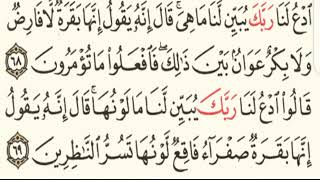 ٱدۡعُ لَنَا رَبَّكَ يُبَيِّن لَّنَا مَا هِيَۚ قَالَ إِنَّهُۥ يَقُولُ إِنَّهَا بَقَرَةٞ لَّا فَارِضٞ
وَلَا بِكۡرٌ عَوَانُۢ بَيۡنَ ذَٰلِكَۖ فَٱفۡعَلُواْ مَا تُؤۡمَرُونَ ٦٨
قَالُواْ ٱدۡعُ لَنَا رَبَّكَ يُبَيِّن لَّنَا مَا لَوۡنُهَاۚ قَالَ إِنَّهُۥ يَقُولُ
إِنَّهَا بَقَرَةٞ صَفۡرَآءُ فَاقِعٞ لَّوۡنُهَا تَسُرُّ ٱلنَّٰظِرِينَ ٦٩